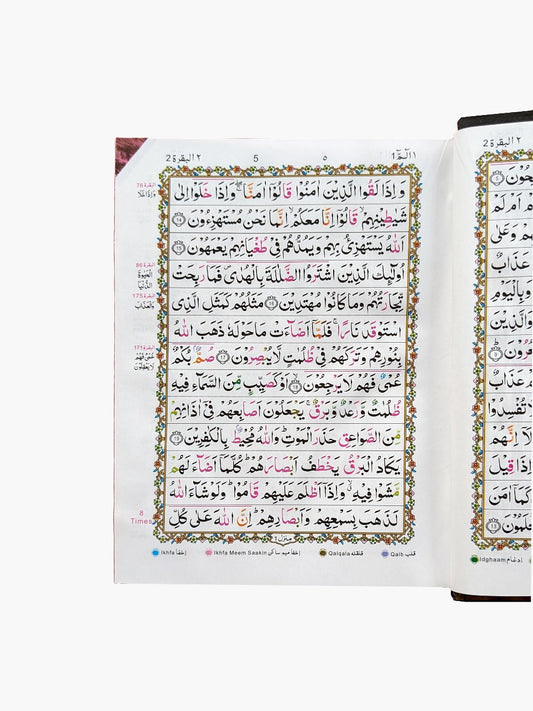 ٢ البقرة 2
5
٥
الٓمّٓ ١
وَاِذَا لَقُوا الَّذِيْنَ اٰمَنُوْا قَالُوْۤا اٰمَنَّا ۖۚ وَاِذَا خَلَوْا اِلٰى
شَيٰطِيْنِهِمْ ۙ قَالُوْۤا اِنَّا مَعَكُمْ ۙ اِنَّمَا نَحْنُ مُسْتَهْزِءُوْنَ ۝١٤
اَللّٰهُ يَسْتَهْزِئُ بِهِمْ وَيَمُدُّهُمْ فِيْ طُغْيَانِهِمْ يَعْمَهُوْنَ ۝١٥
اُولٰٓئِكَ الَّذِيْنَ اشْتَرَوُا الضَّلٰلَةَ بِالْهُدٰى ۪ فَمَا رَبِحَتْ
تِّجَارَتُهُمْ وَمَا كَانُوْا مُهْتَدِيْنَ ۝١٦ مَثَلُهُمْ كَمَثَلِ الَّذِي
اسْتَوْقَدَ نَارًا ۚ فَلَمَّاۤ اَضَآءَتْ مَا حَوْلَهٗ ذَهَبَ اللّٰهُ
بِنُوْرِهِمْ وَتَرَكَهُمْ فِيْ ظُلُمٰتٍ لَّا يُبْصِرُوْنَ ۝١٧ صُمٌّۢ بُكْمٌ
عُمْيٌ فَهُمْ لَا يَرْجِعُوْنَ ۝١٨ اَوْ كَصَيِّبٍ مِّنَ السَّمَآءِ فِيْهِ
ظُلُمٰتٌ وَّرَعْدٌ وَّبَرْقٌ ۚ يَجْعَلُوْنَ اَصَابِعَهُمْ فِيْۤ اٰذَانِهِمْ
مِّنَ الصَّوَاعِقِ حَذَرَ الْمَوْتِ ؕ وَاللّٰهُ مُحِيْطٌۢ بِالْكٰفِرِيْنَ ۝١٩
يَكَادُ الْبَرْقُ يَخْطَفُ اَبْصَارَهُمْ ؕ كُلَّمَاۤ اَضَآءَ لَهُمْ
مَّشَوْا فِيْهِ ۙ وَاِذَاۤ اَظْلَمَ عَلَيْهِمْ قَامُوْا ؕ وَلَوْ شَآءَ اللّٰهُ
لَذَهَبَ بِسَمْعِهِمْ وَاَبْصَارِهِمْ ؕ اِنَّ اللّٰهَ عَلٰى كُلِّ
8
Times
Ikhfa اخفا
Ikhfa Meem Saakin اخفا میم ساکن
Qalqala قلقله
Qalb قلب
٢ البقرة 2
اَمْ لَمْ
وَعَلٰى
عَذَابٌ
وَبِالْيَوْمِ
وَالَّذِيْنَ
عَذَابٌ
تُفْسِدُوْا
اِنَّهُمْ
قِيْلَ
كَمَاۤ اٰمَنَ
Idghaam ادغام